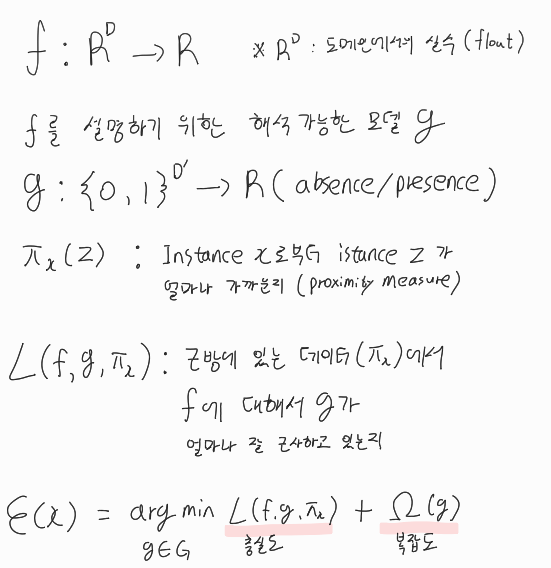 f : R^D → R ※ R^D : 도메인에서의 실수 (float)
f를 설명하기 위한 해석 가능한 모델 g
g : {0,1}^D' → R ( absence/presence )
π_x(z) : Instance x로부터 istance z가
얼마나 가까운지 (proximity measure)
L(f,g,π_x) : 근방에 있는 데이터(π_x)에서
f에 대해서 g가
얼마나 잘 근사하고 있는지
ξ(x) = arg min L(f,g,π_x) + Ω(g)
g∈G 충실도 복잡도